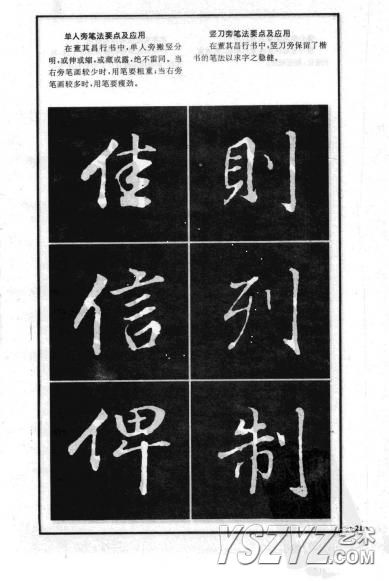 单人旁笔法要点及应用
在董其昌行书中,单人旁撇竖分
明,或伸或缩,或藏或露,绝不雷同。当
右旁笔画较少时,用笔要粗重;当右旁
笔画较多时,用笔要瘦劲。
竖刀旁笔法要点及应用
在董其昌行书中,竖刀旁保留了楷
书的笔法以求字之稳健。
佳 則
信 列
俾 制
21
YSZYZ艺术
.com